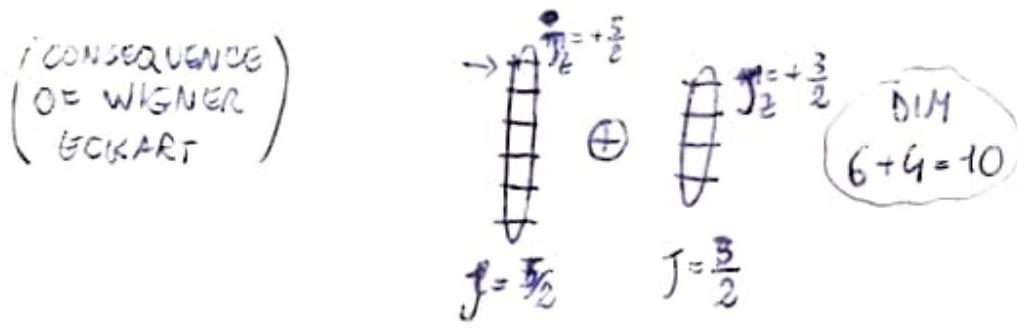 (CONSEQUENCE
OF WIGNER
ECKART)
→ J_z = +5/2
⊕
J_z = +3/2
DIM
6+4=10
J = 5/2
J = 3/2